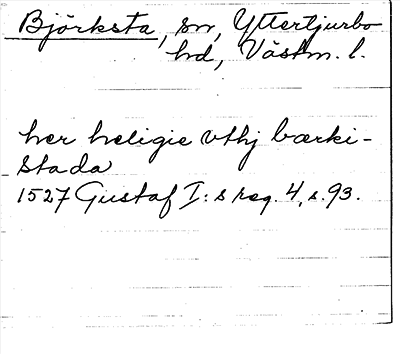 Björksta, sn, Yttertjurbo
hd, Västm. l.
her heligie vthj bærki-
stada
1527 Gustaf I:s reg. 4, s. 93.